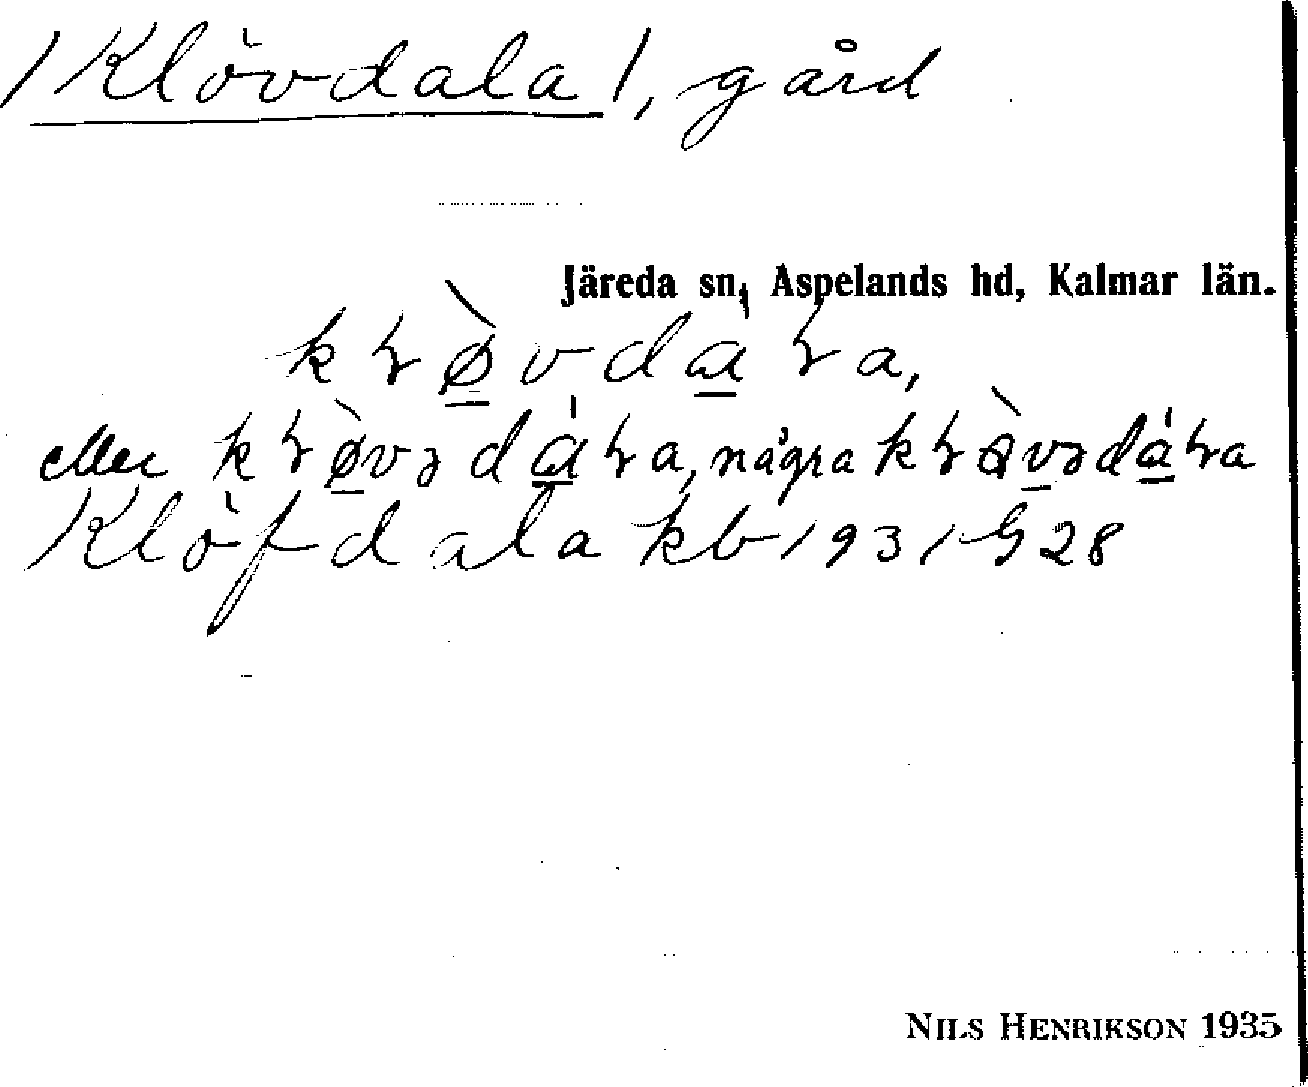 /Klövdala/, gård
Järeda sn, Aspelands hd, Kalmar län.
kɽø̀vdàɽa,
eller kɽø̀vədáɽa, några kɽə̀vədáɽa
Klöfdala kb 1931 G 28
NILS HENRIKSON 1935